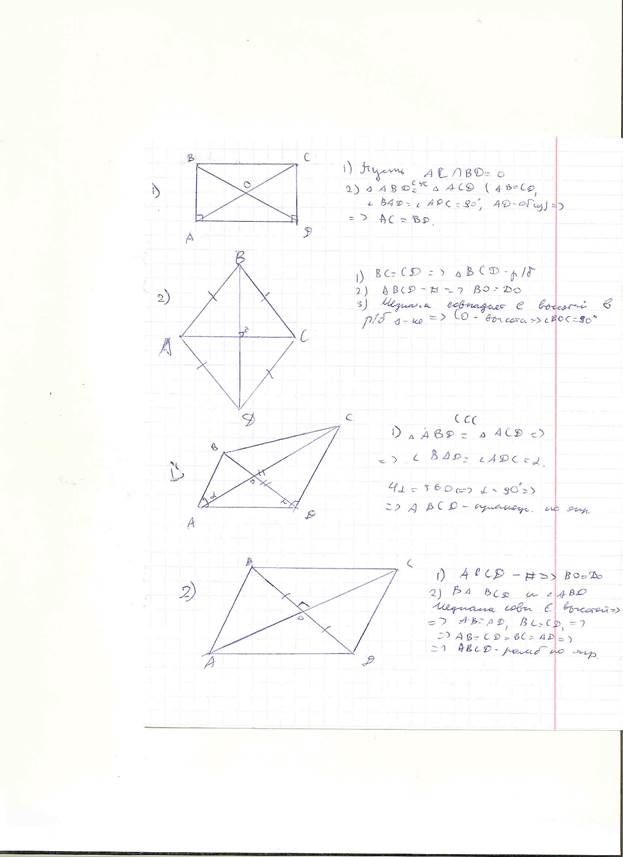 1)
B
C
O
A
D
1) Пусть AC∩BD=O
2) △ABD = △ACD (AB=CD,
∠BAD=∠ADC=90°, AD-общ)=>
=> AC=BD.
2)
B
A
C
D
1) BC=CD => △BCD-р/б
2) ABCD - => BO=DO
3) Медиана совпадает с высотой в
р/б => CO-высота=>∠BOC=90°
1)
B
C
A
α
D
ССС
1) △ABD = △ACD =>
=> ∠BAD=∠ADC=α.
4α=360 => α=90°=>
=> ABCD- по
2)
B
C
O
A
D
1) ABCD - => BO=DO
2) В △ BCD и △ABD
медиана совп с высотой=>
=> AB=AD, BC=CD, =>
=> AB=CD=BC=AD=>
=> ABCD-ромб по